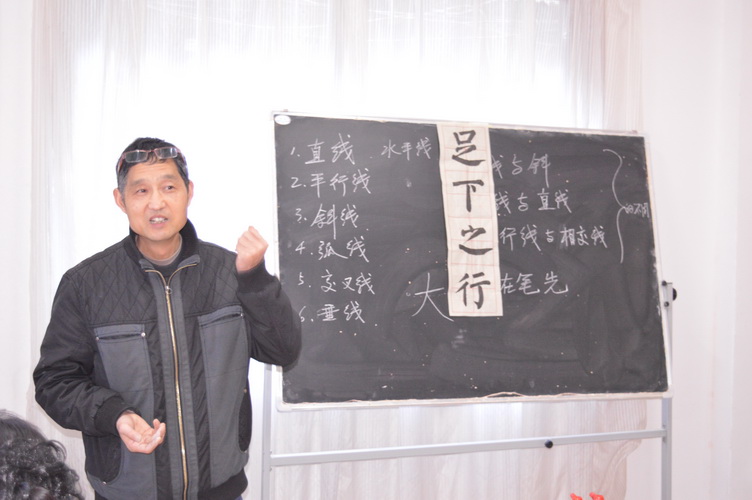 1. 直线 水平线
2. 平行线
3. 斜线
4. 弧线
5. 交叉线
6. 垂线
足下之行
线与斜
线与直线
行线与相交线
在笔先
大
的不同